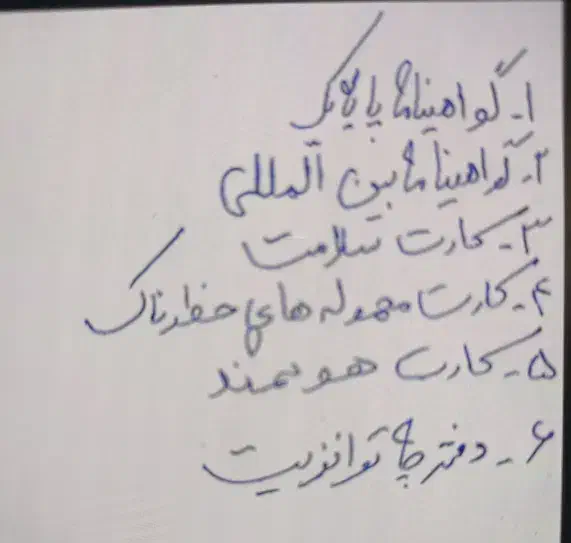 ۱- گواهینامه پایه یک
۲- گواهینامه بین المللی
۳- کارت سلامت
۴- کارت محموله های خطرناک
۵- کارت هوشمند
۶- دفترچه ترانزیت